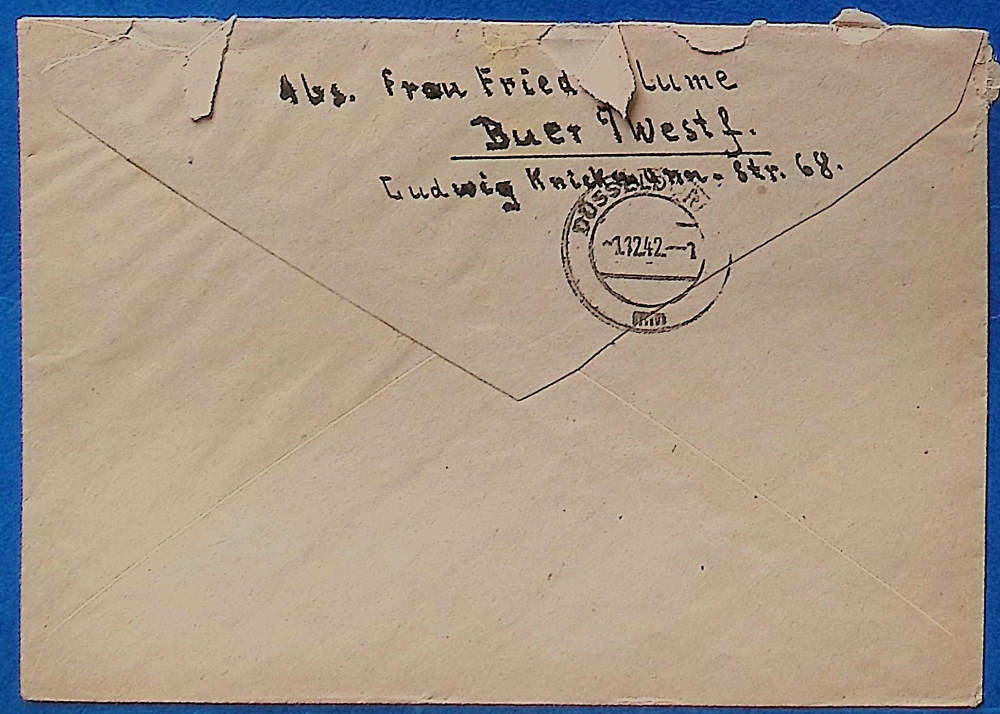 Abs. Frau Fried lume
Buer i Westf.
Ludwig Knickmann-Str. 68.
DÜSSELD R
-1.12.42.--1